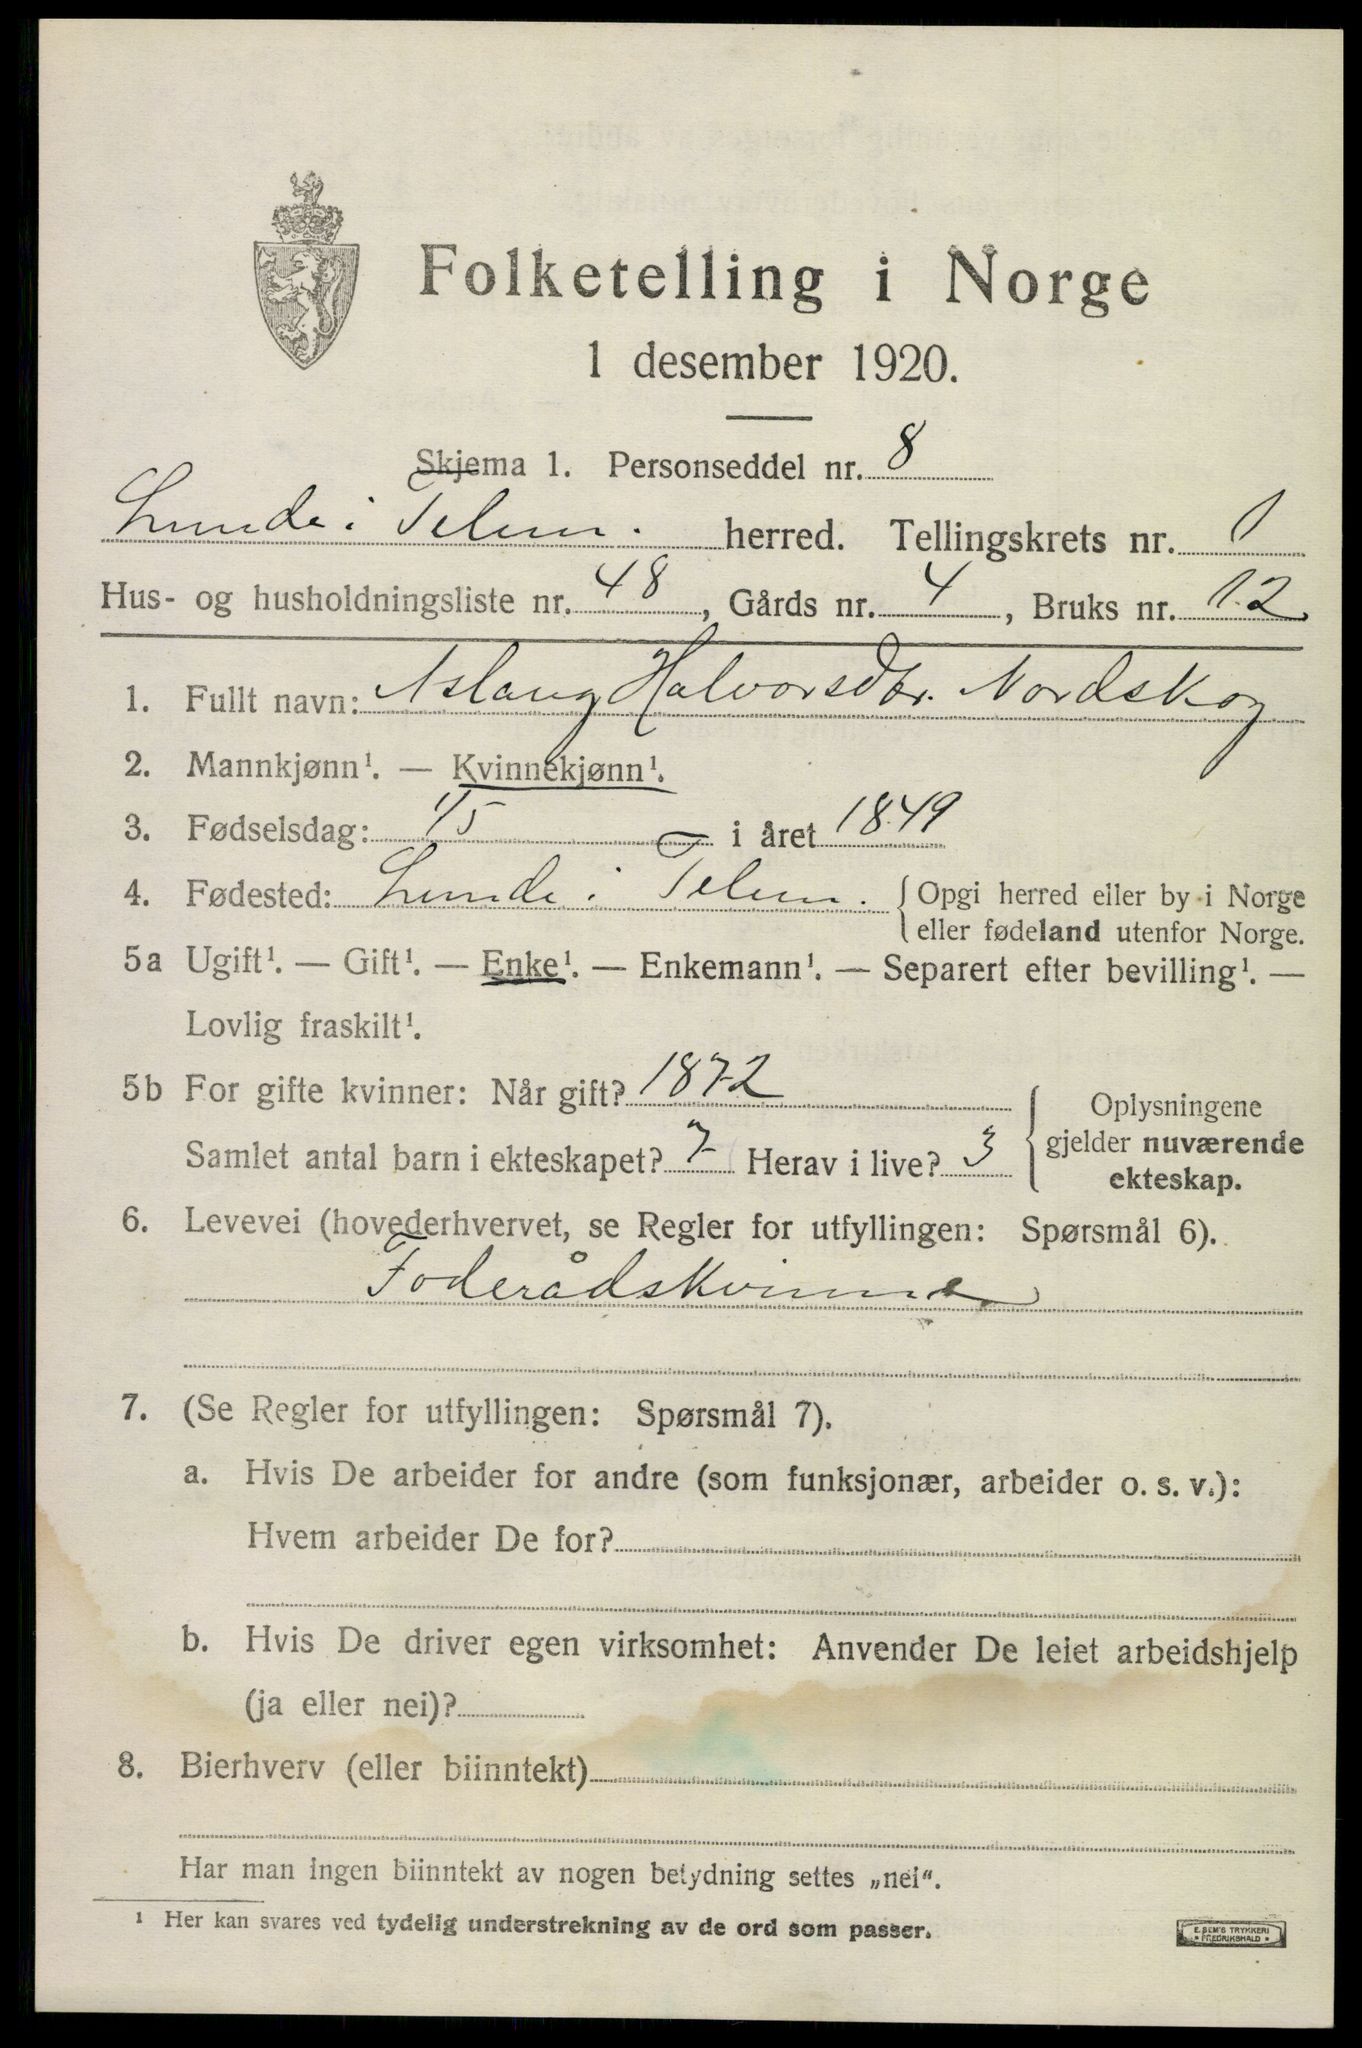 Folketelling i Norge
1 desember 1920.
Skjema 1. Personseddel nr. 8
Lunde i Telem. herred. Tellingskrets nr. 1
Hus- og husholdningsliste nr. 48, Gårds nr. 4, Bruks nr. 12
1. Fullt navn: Aslaug Halvorsdtr. Nordskog
2. Mannkjønn¹. — Kvinnekjønn¹.
3. Fødselsdag: 1/5 i året 1849
4. Fødested: Lunde i Telem. { Opgi herred eller by i Norge
eller fødeland utenfor Norge.
5a Ugift¹. — Gift¹. — Enke¹. — Enkemann¹. — Separert efter bevilling¹. —
Lovlig fraskilt¹.
5b For gifte kvinner: Når gift? 1872
Samlet antal barn i ekteskapet? 7 Herav i live? 3
Oplysningene
gjelder nuværende
ekteskap.
6. Levevei (hovederhvervet, se Regler for utfyllingen: Spørsmål 6).
Foderådskvinne
7. (Se Regler for utfyllingen: Spørsmål 7).
a. Hvis De arbeider for andre (som funksjonær, arbeider o. s. v.):
Hvem arbeider De for?
b. Hvis De driver egen virksomhet: Anvender De leiet arbeidshjelp
(ja eller nei)?
8. Bierhverv (eller biinntekt)
Har man ingen biinntekt av nogen betydning settes „nei“.
¹ Her kan svares ved tydelig understrekning av de ord som passer.
E. SEM'S TRYKKERI
• FREDRIKSHALD •